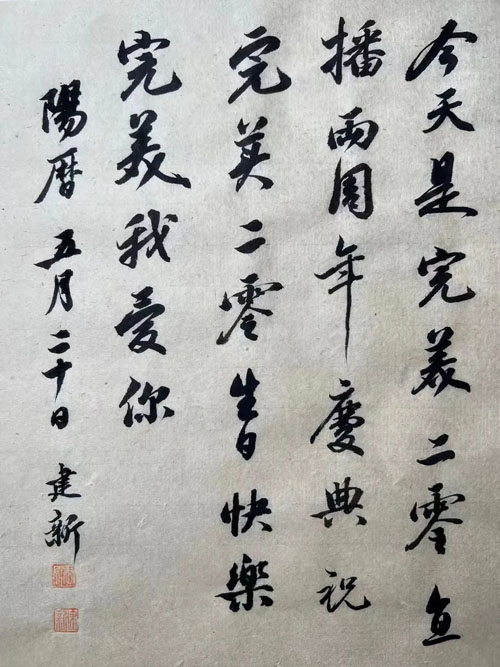 今天是完美二零直
播兩周年慶典祝
完美二零生日快樂
完美我愛你
陽曆五月二十日 建新